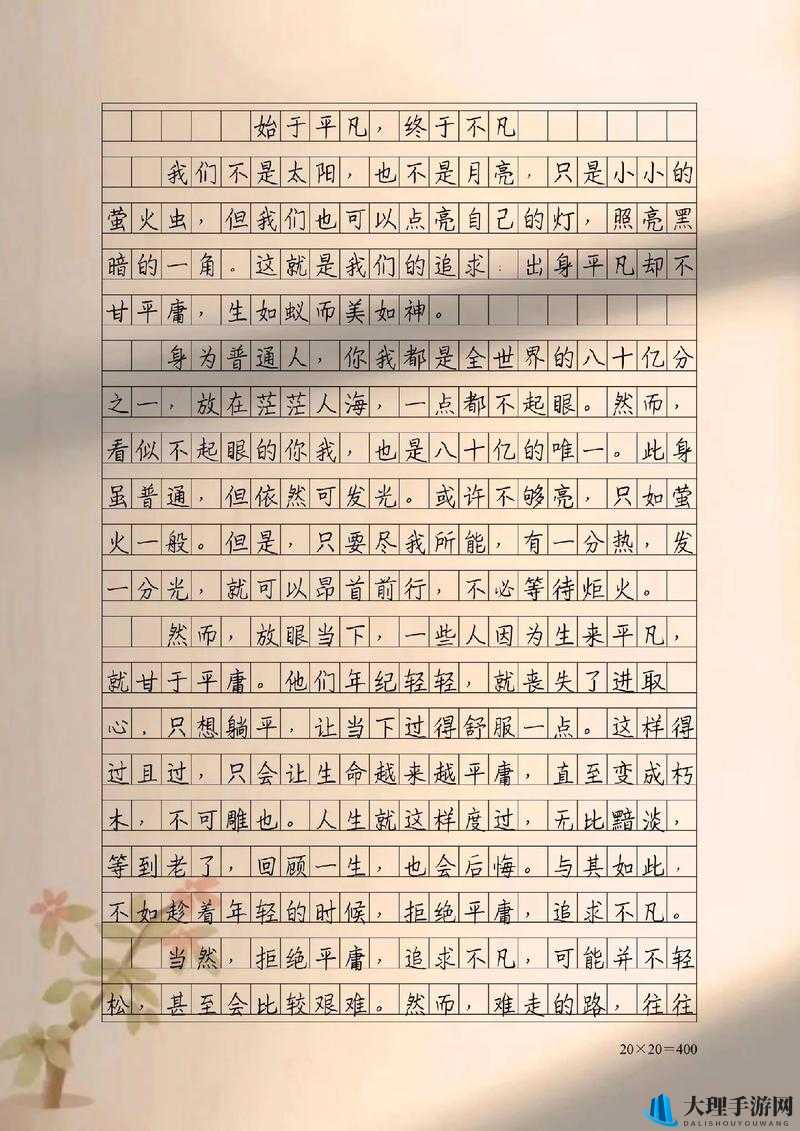 始于平凡，终于不凡
我们不是太阳，也不是月亮，只是小小的
萤火虫，但我们也可以点亮自己的灯，照亮黑
暗的一角。这就是我们的追求：出身平凡却不
甘平庸，生如蚁而美如神。
身为普通人，你我都是全世界的八十亿分
之一，放在茫茫人海，一点都不起眼。然而，
看似不起眼的你我，也是八十亿的唯一。此身
虽普通，但依然可发光。或许不够亮，只如萤
火一般。但是，只要尽我所能，有一分热，发
一分光，就可以昂首前行，不必等待炬火。
然而，放眼当下，一些人因为生来平凡，
就甘于平庸。他们年纪轻轻，就丧失了进取
心，只想躺平，让当下过得舒服一点。这样得
过且过，只会让生命越来越平庸，直至变成朽
木，不可雕也。人生就这样度过，无比黯淡，
等到老了，回顾一生，也会后悔。与其如此，
不如趁着年轻的时候，拒绝平庸，追求不凡。
当然，拒绝平庸，追求不凡，可能并不轻
松，甚至会比较艰难。然而，难走的路，往往
20×20=400
大理手游网
DALISHOUYOUWANG